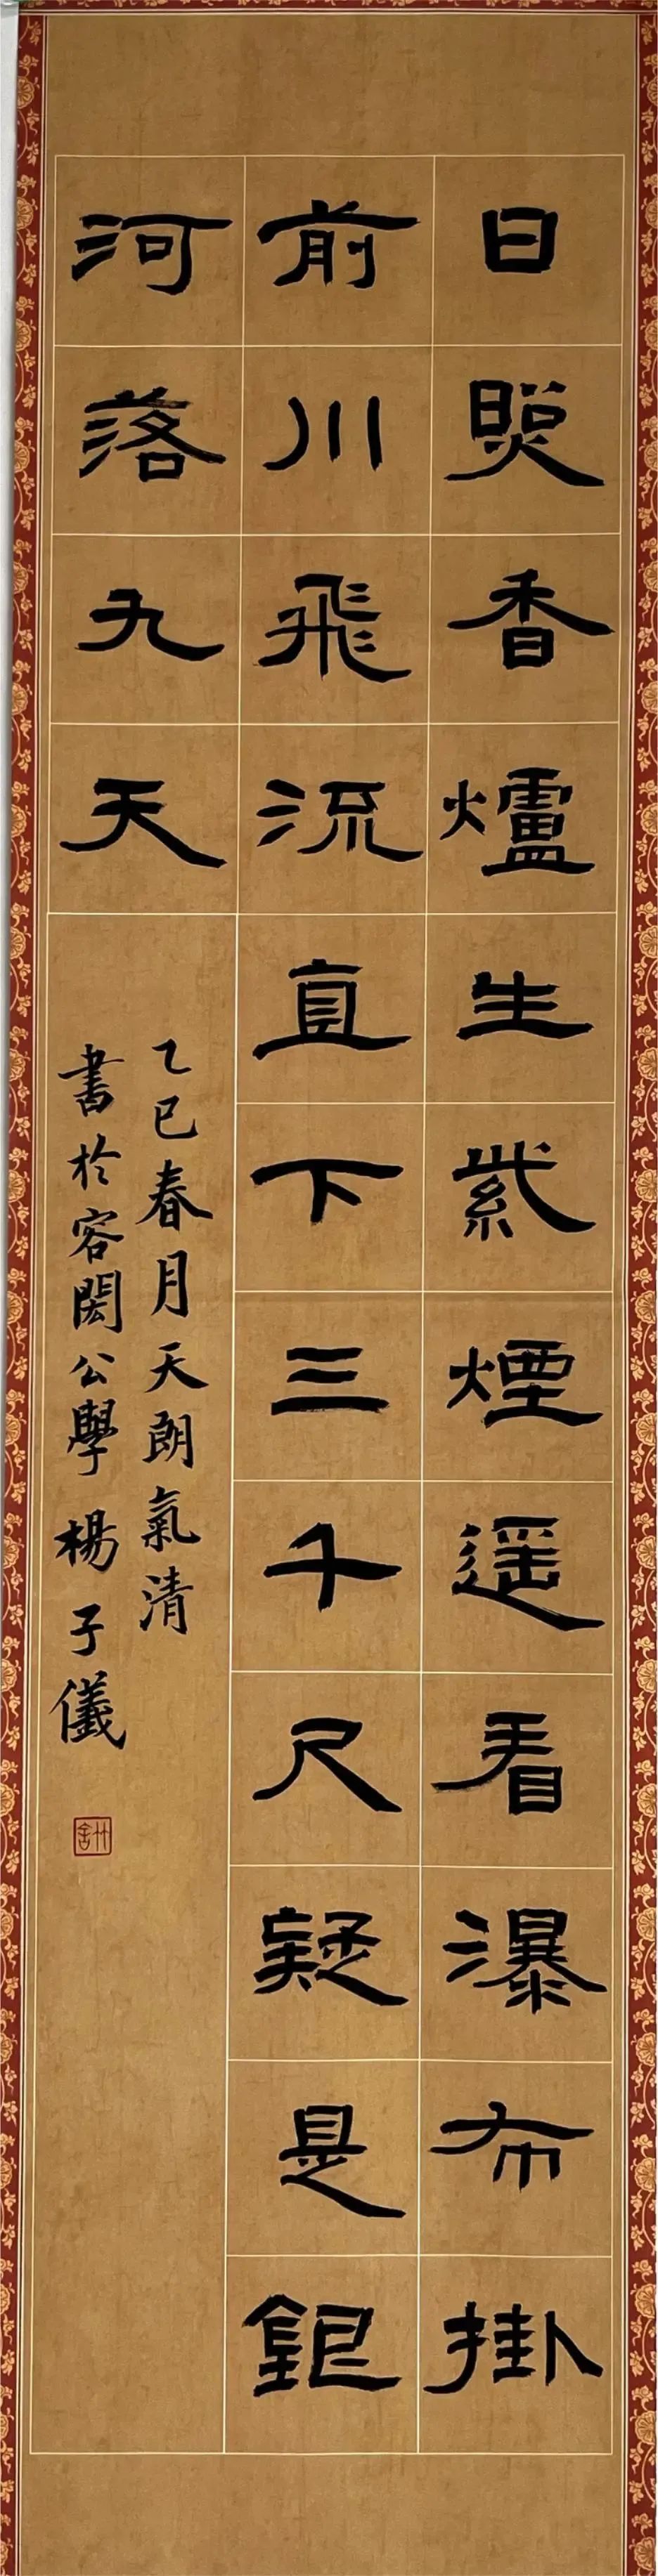 日照香爐生紫煙遥看瀑布掛
前川飛流直下三千尺疑是銀
河落九天
乙巳春月天朗氣清
書於容閎公學楊子儀